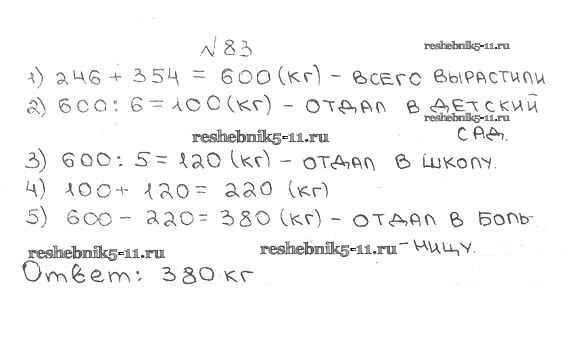 №83
reshebnik5-11.ru
1) 246 + 354 = 600 (кг) - всего вырастили
2) 600 : 6 = 100 (кг) - отдал в детский
reshebnik5-11.ru
сад.
reshebnik5-11.ru
3) 600 : 5 = 120 (кг) - отдал в школу.
4) 100 + 120 = 220 (кг)
5) 600 - 220 = 380 (кг) - отдал в боль-
-ницу.
reshebnik5-11.ru
reshebnik5-11.ru
Ответ: 380 кг